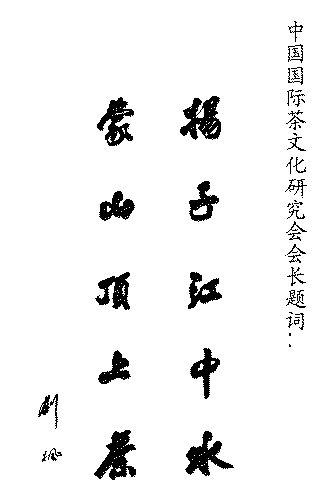 中国国际茶文化研究会会长题词：
揚子江中水
蒙山頂上茶
刘枫